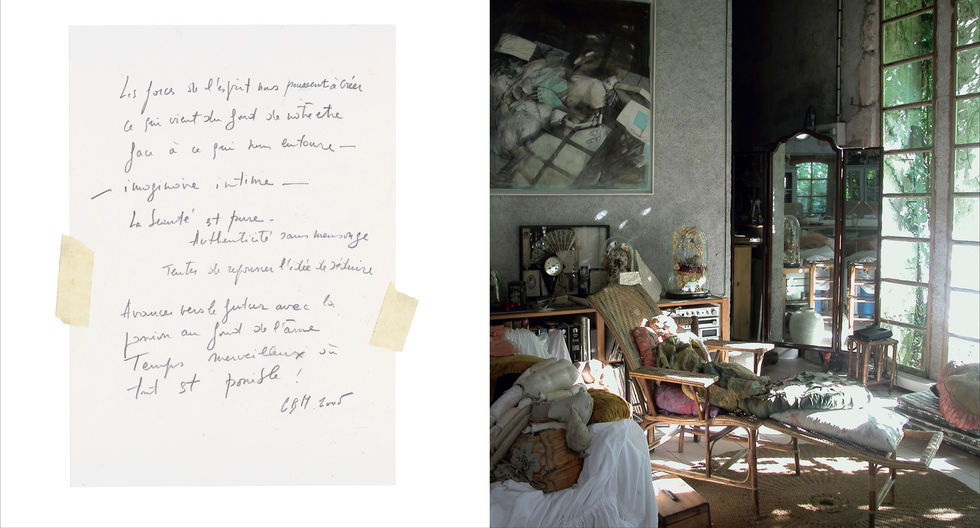 Les forces de l'esprit nous poussent à créer
ce qui vient du fond de notre être
face à ce qui nous entoure —
— imaginaire intime —
La beauté est pure.
Authenticité sans mensonge
Tenter de repousser l'idée de séduire
Avancer vers le futur avec la
passion au fond de l'âme
Temps merveilleux où
tout est possible !
CBM. 2005